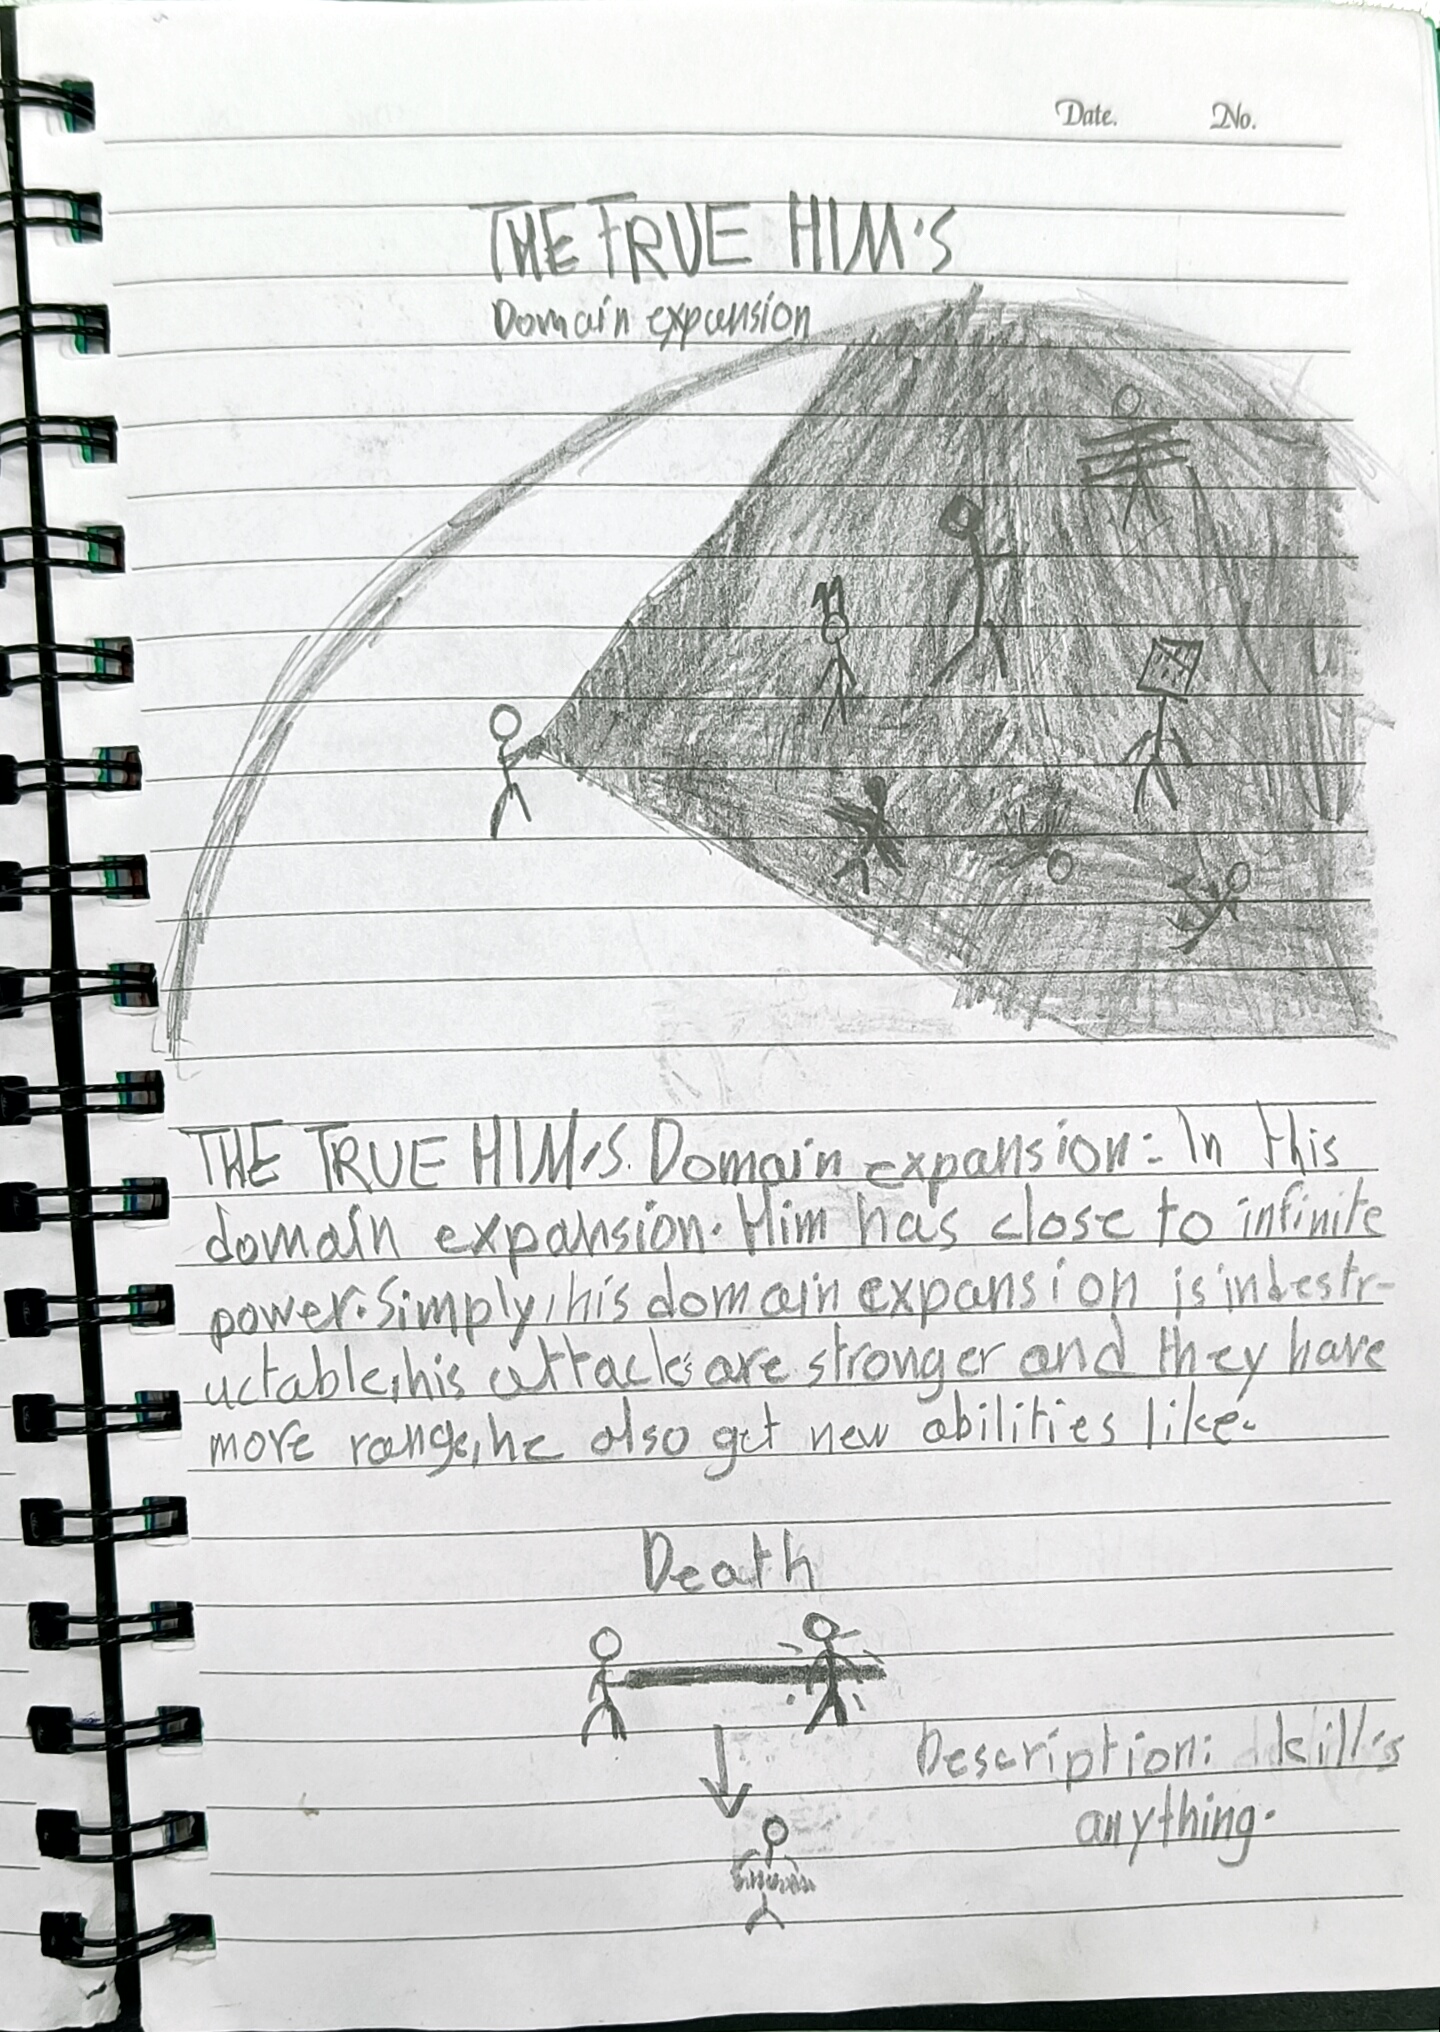 Date. No.
THE TRUE HIM'S
Domain expansion
THE TRUE HIM'S. Domain expansion: In this
domain expansion. Him has close to infinite
power. Simply, his domain expansion is indestr-
uctable, his attacks are stronger and they have
more range, he also get new abilities like.
Death
Description: kill's
anything.